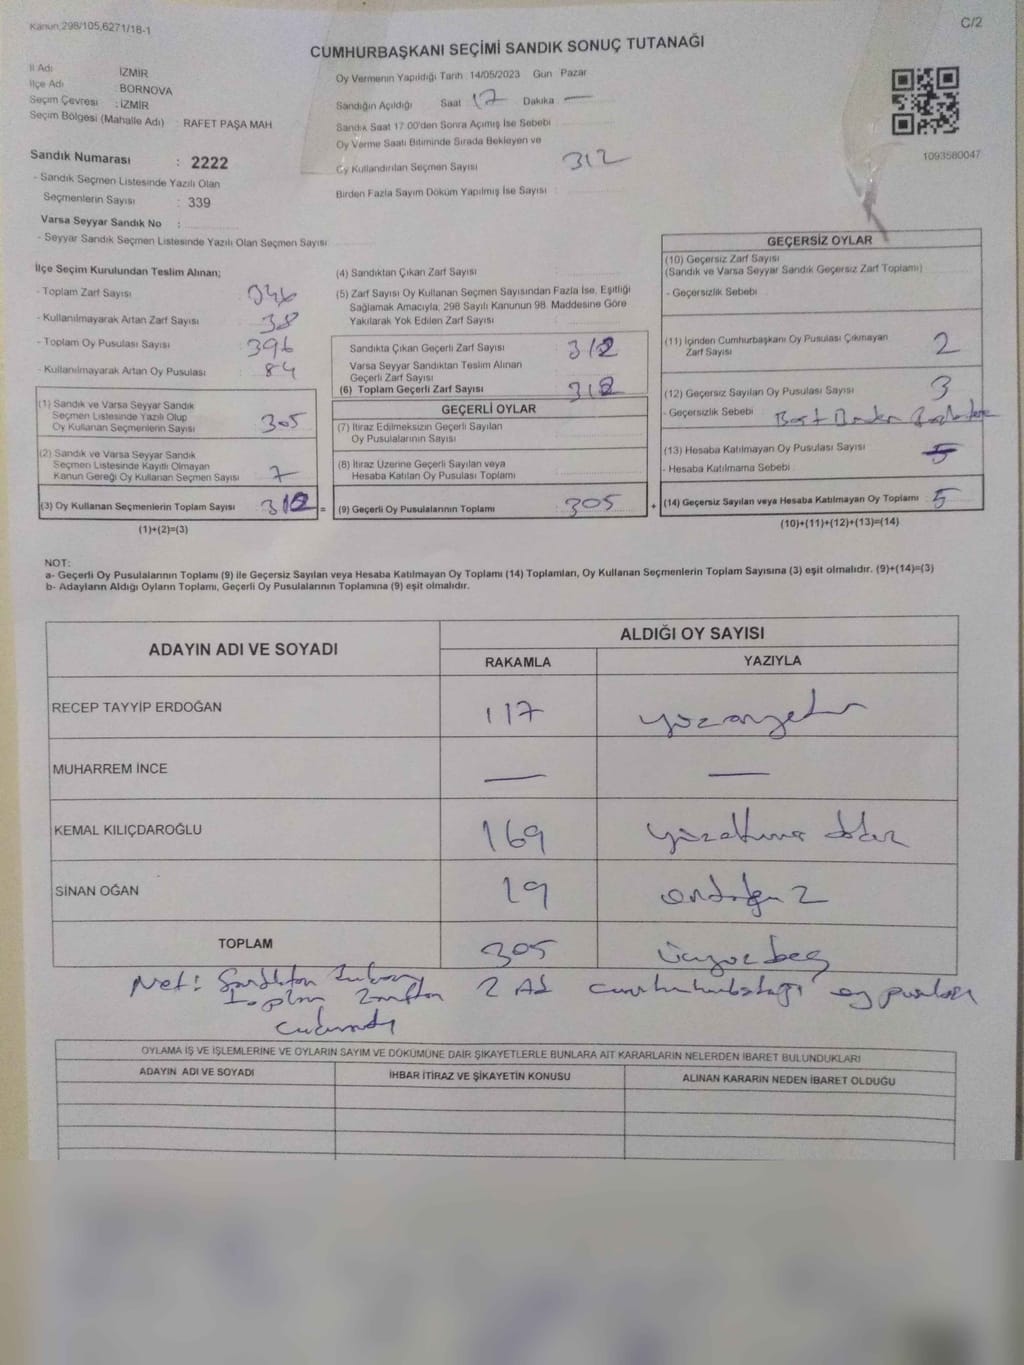 Kanun,298/105,6271/18-1
C/2
CUMHURBAŞKANI SEÇİMİ SANDIK SONUÇ TUTANAĞI
İl Adı İZMİR
İlçe Adı BORNOVA
Seçim Çevresi : İZMİR
Seçim Bölgesi (Mahalle Adı) RAFET PAŞA MAH
Sandık Numarası : 2222
- Sandık Seçmen Listesinde Yazılı Olan
Seçmenlerin Sayısı : 339
Varsa Seyyar Sandık No :
- Seyyar Sandık Seçmen Listesinde Yazılı Olan Seçmen Sayısı
Oy Vermenin Yapıldığı Tarih 14/05/2023 Gün Pazar
Sandığın Açıldığı Saat 17 Dakika —
Sandık Saat 17:00'den Sonra Açımış İse Sebebi
Oy Verme Saati Bitiminde Sırada Bekleyen ve
Oy Kullandırılan Seçmen Sayısı 312
Birden Fazla Sayım Döküm Yapılmış İse Sayısı :
1093580047
İlçe Seçim Kurulundan Teslim Alınan;
- Toplam Zarf Sayısı
- Kullanılmayarak Artan Zarf Sayısı 38
- Toplam Oy Pusulası Sayısı 396
- Kullanılmayarak Artan Oy Pusulası 84
(1) Sandık ve Varsa Seyyar Sandık
Seçmen Listesinde Yazılı Olup
Oy Kullanan Seçmenlerin Sayısı 305
(2) Sandık ve Varsa Seyyar Sandık
Seçmen Listesinde Kayıtlı Olmayan
Kanun Gereği Oy Kullanan Seçmen Sayısı 7
(3) Oy Kullanan Seçmenlerin Toplam Sayısı 312 =
(1)+(2)=(3)
(4) Sandıktan Çıkan Zarf Sayısı
(5) Zarf Sayısı Oy Kullanan Seçmen Sayısından Fazla İse, Eşitliği
Sağlamak Amacıyla, 298 Sayılı Kanunun 98. Maddesine Göre
Yakılarak Yok Edilen Zarf Sayısı
Sandıkta Çıkan Geçerli Zarf Sayısı 312
Varsa Seyyar Sandıktan Teslim Alınan
Geçerli Zarf Sayısı
(6) Toplam Geçerli Zarf Sayısı 312
GEÇERLİ OYLAR
(7) İtiraz Edilmeksizin Geçerli Sayılan
Oy Pusulalarının Sayısı
(8) İtiraz Üzerine Geçerli Sayılan veya
Hesaba Katılan Oy Pusulası Toplamı
(9) Geçerli Oy Pusulalarının Toplamı 305 +
GEÇERSİZ OYLAR
(10) Geçersiz Zarf Sayısı
(Sandık ve Varsa Seyyar Sandık Geçersiz Zarf Toplamı)
- Geçersizlik Sebebi
(11) İçinden Cumhurbaşkanı Oy Pusulası Çıkmayan
Zarf Sayısı 2
(12) Geçersiz Sayılan Oy Pusulası Sayısı 3
- Geçersizlik Sebebi
(13) Hesaba Katılmayan Oy Pusulası Sayısı 5
- Hesaba Katılmama Sebebi
(14) Geçersiz Sayılan veya Hesaba Katılmayan Oy Toplamı 5
(10)+(11)+(12)+(13)=(14)
NOT:
a- Geçerli Oy Pusulalarının Toplamı (9) ile Geçersiz Sayılan veya Hesaba Katılmayan Oy Toplamı (14) Toplamları, Oy Kullanan Seçmenlerin Toplam Sayısına (3) eşit olmalıdır. (9)+(14)=(3)
b- Adayların Aldığı Oyların Toplamı, Geçerli Oy Pusulalarının Toplamına (9) eşit olmalıdır.
ADAYIN ADI VE SOYADI
ALDIĞI OY SAYISI
RAKAMLA YAZIYLA
RECEP TAYYİP ERDOĞAN 117 yüzonyedi
MUHARREM İNCE — —
KEMAL KILIÇDAROĞLU 169 yüzaltmış dokuz
SİNAN OĞAN 19 ondokuz
TOPLAM 305 üçyüz beş
Not:
Toplam Zarftan 2 Ad cumhurbaşkanı oy pusulası
OYLAMA İŞ VE İŞLEMLERİNE VE OYLARIN SAYIM VE DÖKÜMÜNE DAİR ŞİKAYETLERLE BUNLARA AİT KARARLARIN NELERDEN İBARET BULUNDUKLARI
ADAYIN ADI VE SOYADI İHBAR İTİRAZ VE ŞİKAYETİN KONUSU ALINAN KARARIN NEDEN İBARET OLDUĞU